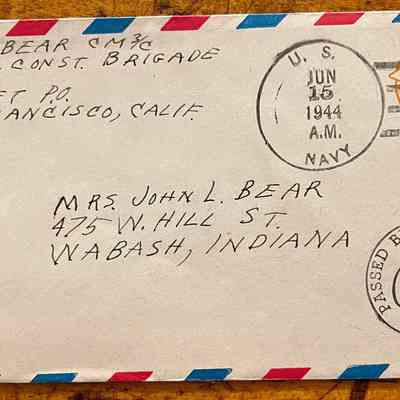 BEAR CM3/C
CONST. BRIGADE
ET P.O.
ANCISCO, CALIF.
U. S.
JUN
15
1944
A.M.
NAVY
MRS. JOHN L. BEAR
475 W. HILL ST.
WABASH, INDIANA
PASSED B